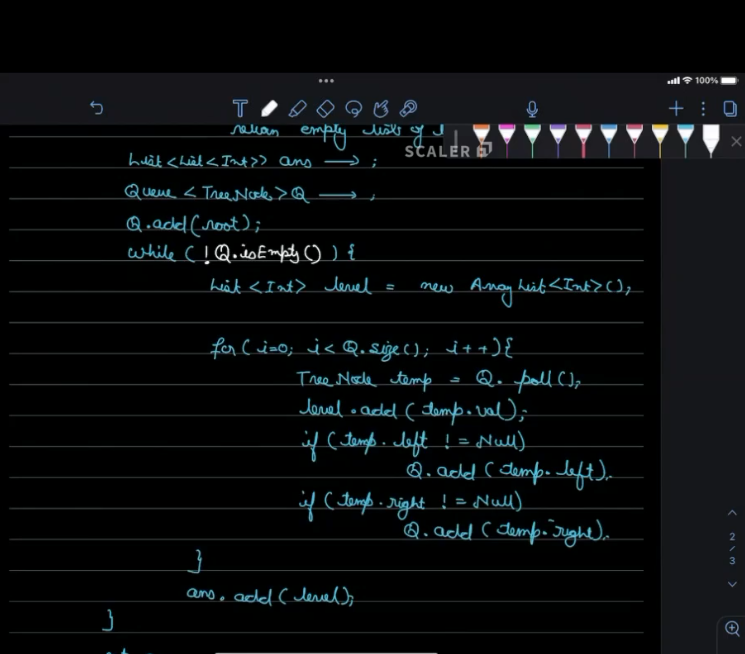 100%
return empty list of
SCALER
List<List<Int>> ans → ;
Queue <TreeNode> Q → ,
Q.add(root);
while ( ! Q.isEmpty() ) {
List <Int> level = new ArrayList<Int>();
for( i=0; i< Q.size(); i++){
TreeNode temp = Q. poll();
level.add( temp.val);
if ( temp. left != Null)
Q.add (temp. left).
if ( temp. right != Null)
Q. add (temp. right).
}
ans. add( level);
}
2
/
3